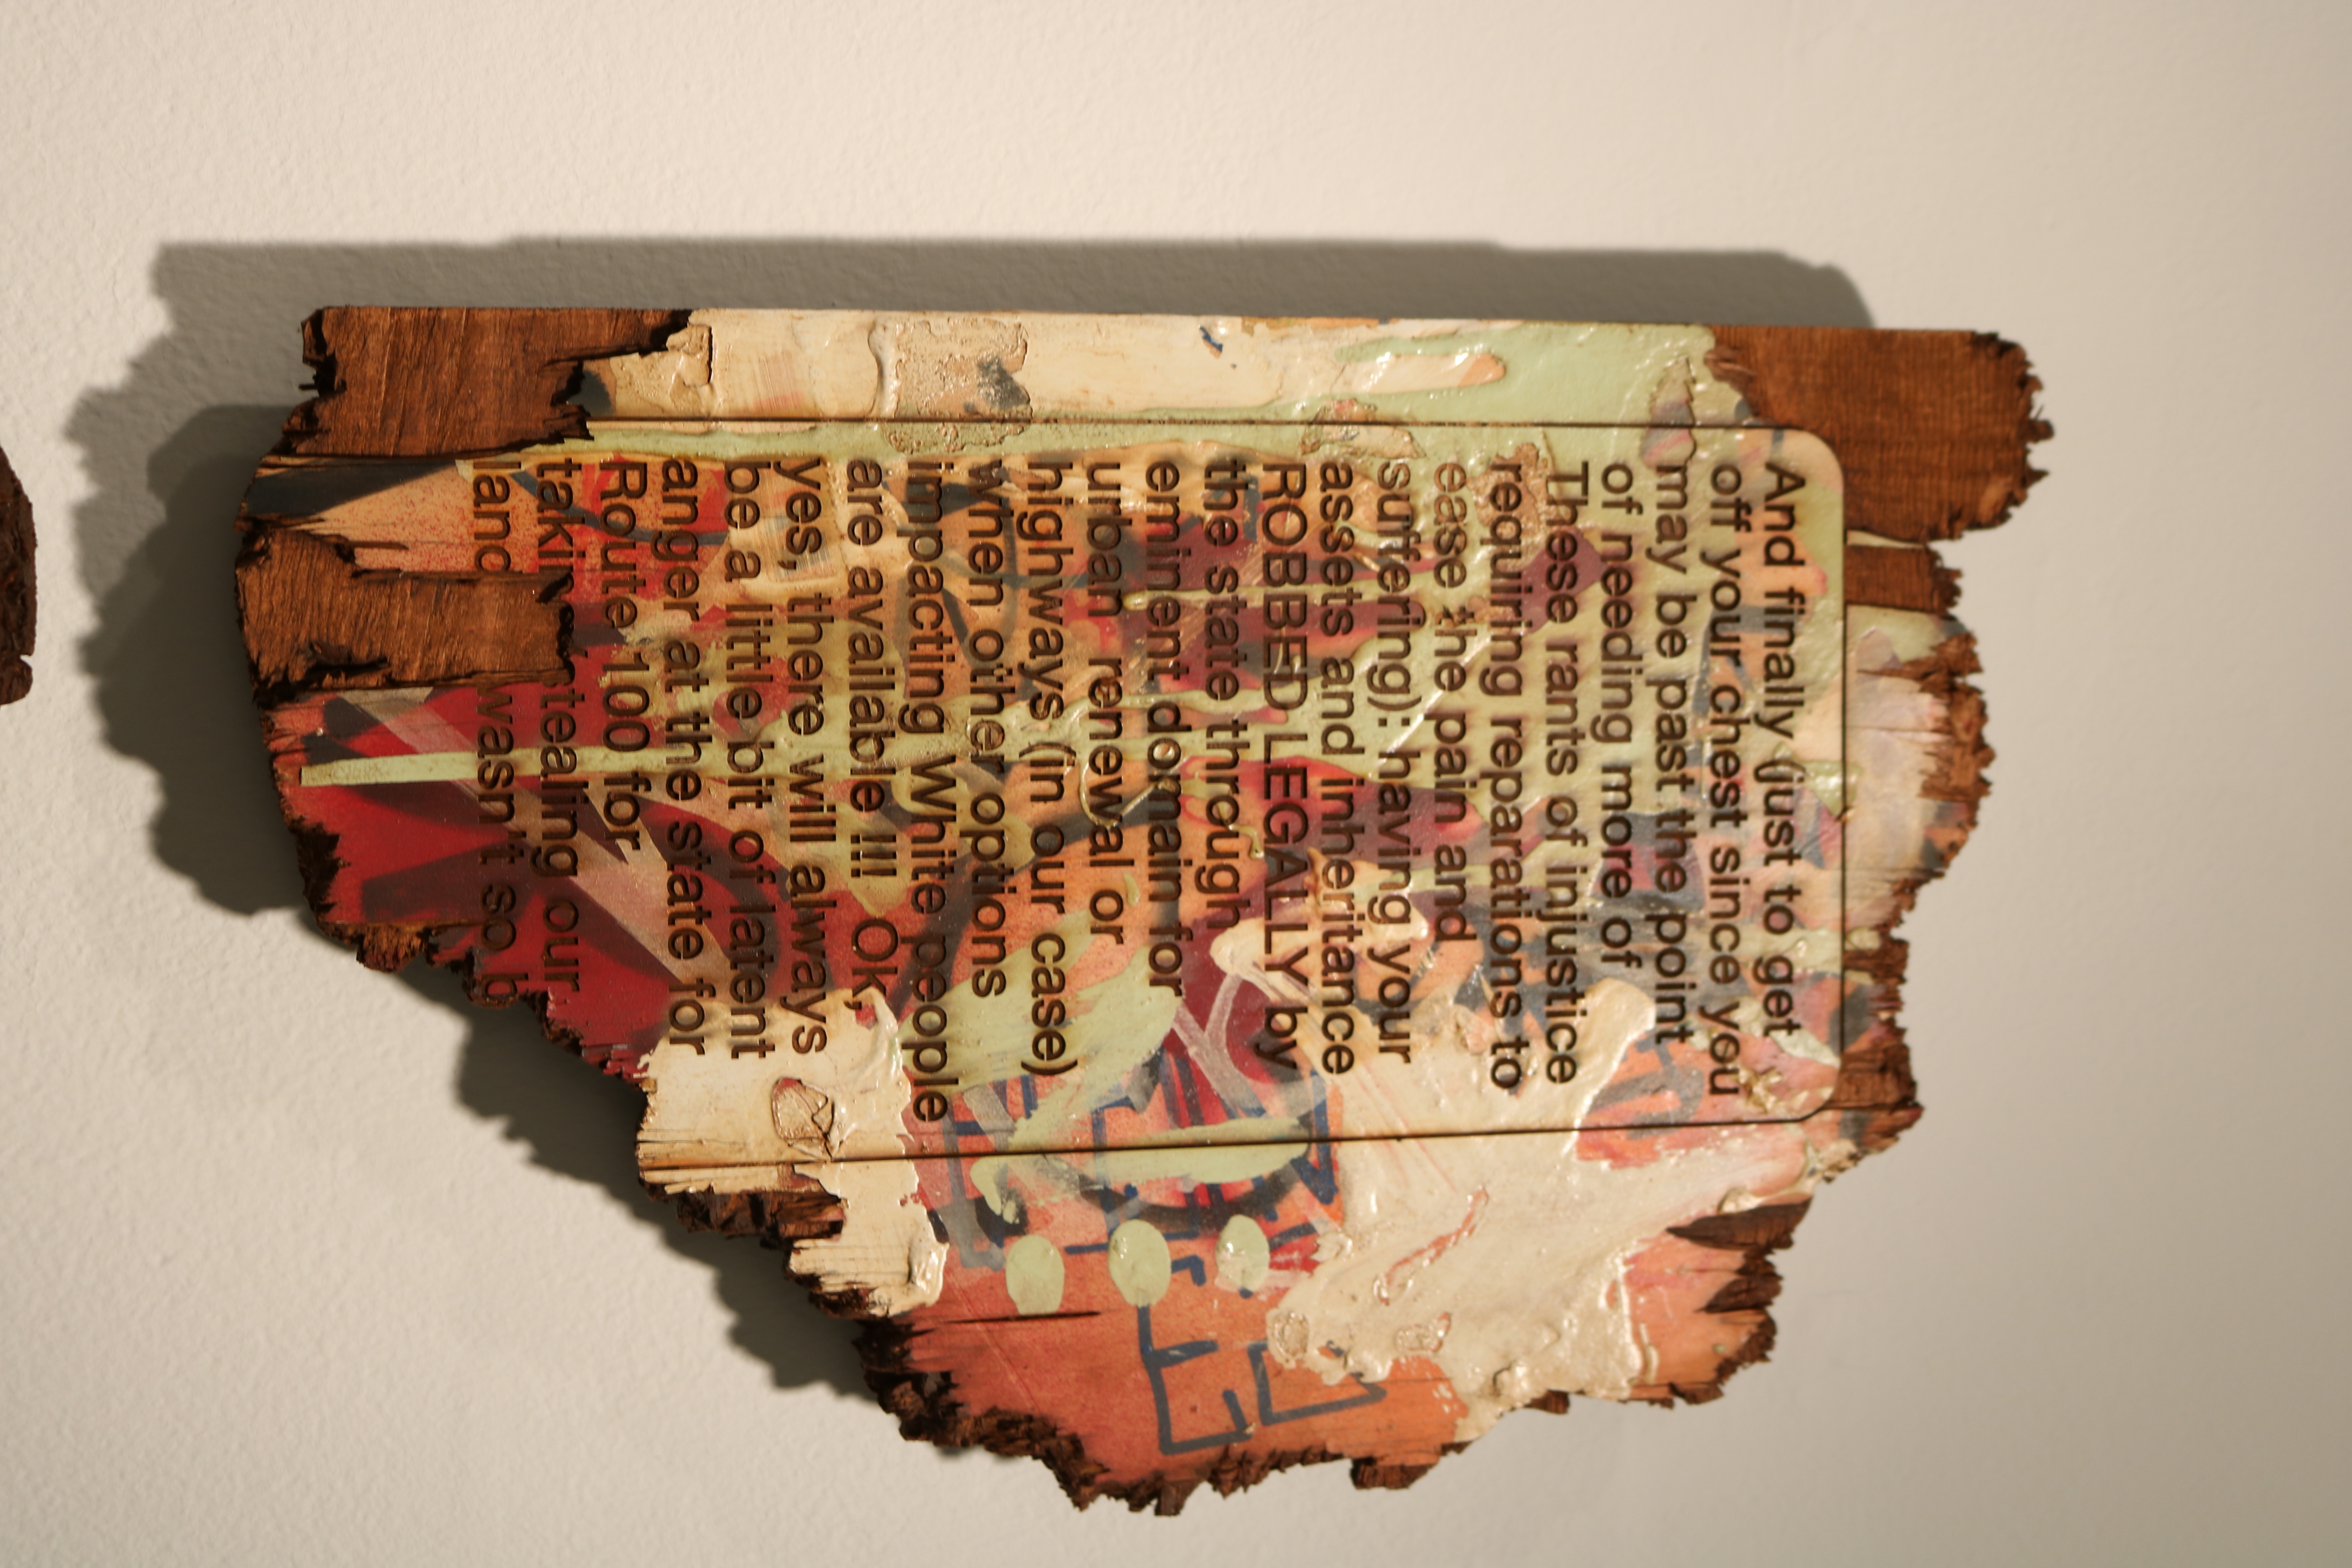 And finally (just to get
off your chest since you
may be past the point
of needing more of
These rants of injustice
requiring reparations to
ease the pain and
suffering): having your
assets and inheritance
ROBBED LEGALLY by
the state through
eminent domain for
urban renewal or
highways (in our case)
when other options
impacting White people
are available !!!! Ok,
yes, there will always
be a little bit of latent
anger at the state for
Route 100 for
our
land wasn't so